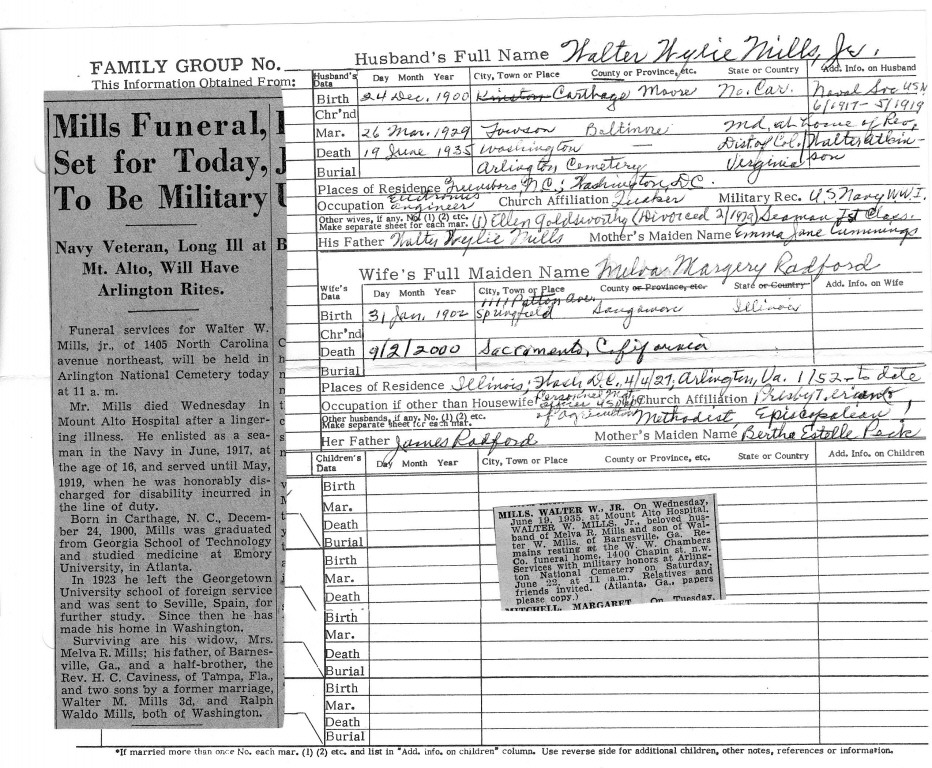 FAMILY GROUP No.
This Information Obtained From:
Mills Funeral,
Set for Today,
To Be Military
Navy Veteran, Long Ill at
Mt. Alto, Will Have
Arlington Rites.
Funeral services for Walter W.
Mills, jr., of 1405 North Carolina
avenue northeast, will be held in
Arlington National Cemetery today
at 11 a. m.
Mr. Mills died Wednesday in
Mount Alto Hospital after a linger-
ing illness. He enlisted as a sea-
man in the Navy in June, 1917, at
the age of 16, and served until May,
1919, when he was honorably dis-
charged for disability incurred in
the line of duty.
Born in Carthage, N. C., Decem-
ber 24, 1900, Mills was graduated
from Georgia School of Technology
and studied medicine at Emory
University, in Atlanta.
In 1923 he left the Georgetown
University school of foreign service
and was sent to Seville, Spain, for
further study. Since then he has
made his home in Washington.
Surviving are his widow, Mrs.
Melva R. Mills; his father, of Barnes-
ville, Ga., and a half-brother, the
Rev. H. C. Caviness, of Tampa, Fla.,
and two sons by a former marriage,
Walter M. Mills 3d, and Ralph
Waldo Mills, both of Washington.
Husband's Full Name Walter Wylie Mills, Jr.
Husband's Data Day Month Year City, Town or Place County or Province, etc. State or Country Add. Info. on Husband
Birth 24 Dec. 1900 Kinston Carthage Moore No. Car. Naval Svc USN
Chr'nd 6/1917-5/1919
Mar. 26 Mar. 1929 Towson Baltimore Md, at home of Rev.
Death 19 June 1935 Washington — Dist of Col. Walter Atkin-
Burial Arlington Cemetery Virginia son
Places of Residence Greensboro N.C.; Washington, D.C.
Occupation Electronics engineer Church Affiliation Quaker Military Rec. U.S. Navy WW I.
Other wives, if any. No. (1) (2) etc.
Make separate sheet for each mar. (1) Ellen Goldsworthy (Divorced 2/1929) Seaman 1st Class.
His Father Walter Wylie Mills Mother's Maiden Name Emma Jane Cummings
Wife's Full Maiden Name Melva Margery Radford
Wife's Data Day Month Year City, Town or Place County or Province, etc. State or Country Add. Info. on Wife
1111 Patton Ave.
Birth 31 Jan. 1902 Springfield Sangamon Illinois
Chr'nd
Death 9/2/2000 Sacramento, California
Burial
Places of Residence Illinois; Wash D.C. 4/4/27; Arlington, Va. 1/52 - to date
Occupation if other than Housewife Personnel Mgt. officer US Dept of Agriculture Church Affiliation Presbyterian to
Other husbands, if any. No. (1) (2) etc.
Make separate sheet for each mar. Methodist Episcopalian!
Her Father James Radford Mother's Maiden Name Bertha Estelle Peck
Children's Data Day Month Year City, Town or Place County or Province, etc. State or Country Add. Info. on Children
Birth
Mar.
Death
Burial
Birth
Mar.
Death
Birth
Mar.
Death
Burial
Birth
Mar.
Death
Burial
MILLS, WALTER W., JR. On Wednesday,
June 19, 1935, at Mount Alto Hospital,
WALTER W. MILLS, Jr., beloved hus-
band of Melva R. Mills and son of Wal-
ter W. Mills, of Barnesville, Ga. Re-
mains resting at the W. W. Chambers
Co. funeral home, 1400 Chapin st. n.w.
Services with military honors at Arling-
ton National Cemetery on Saturday,
June 22, at 11 a.m. Relatives and
friends invited. (Atlanta, Ga., papers
please copy.)
MITCHELL, MARGARET. On Tuesday,
*If married more than once No. each mar. (1) (2) etc. and list in "Add. info. on children" column. Use reverse side for additional children, other notes, references or information.